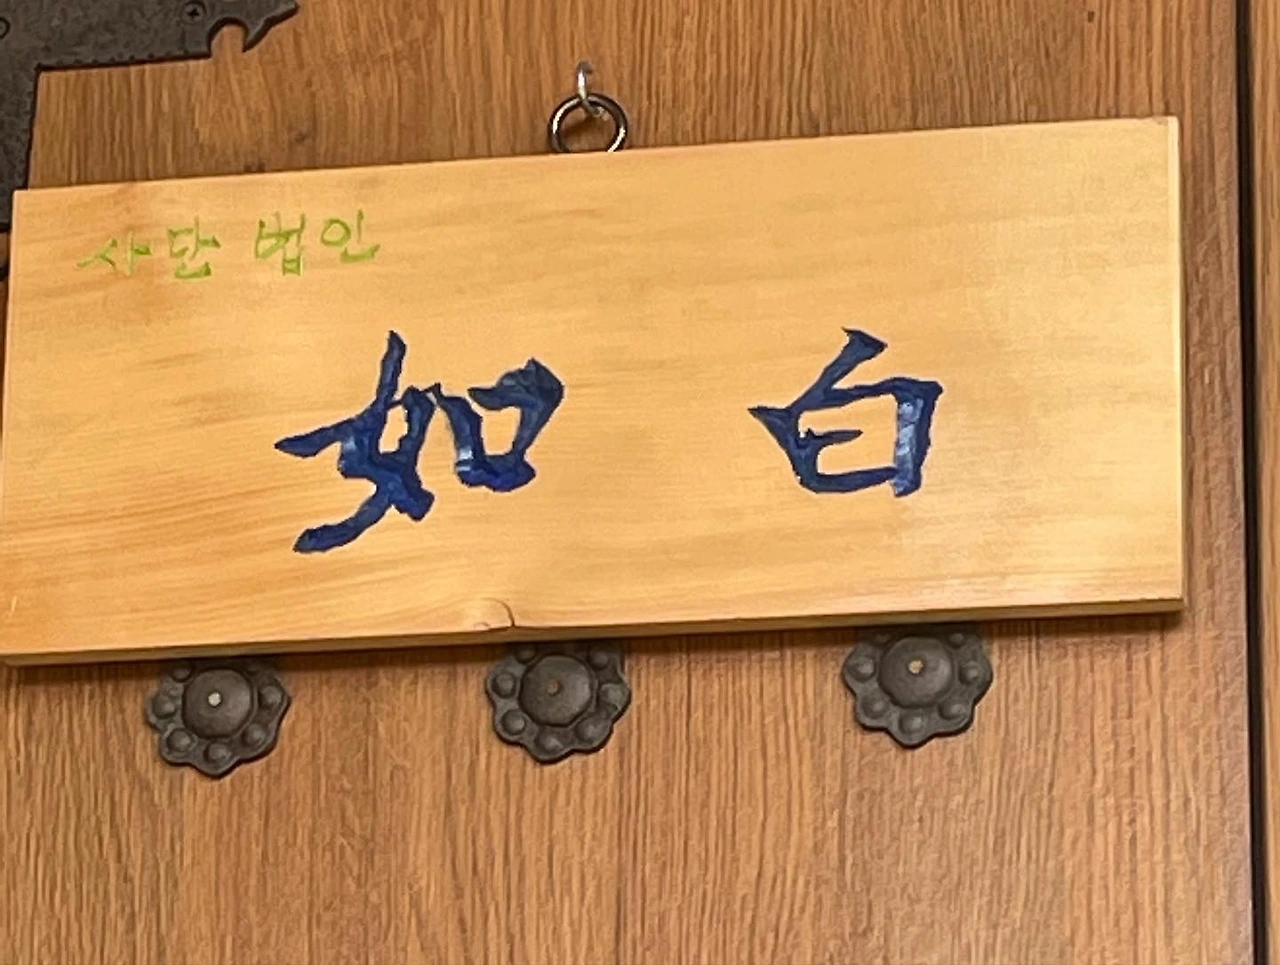 사단 법인
如白